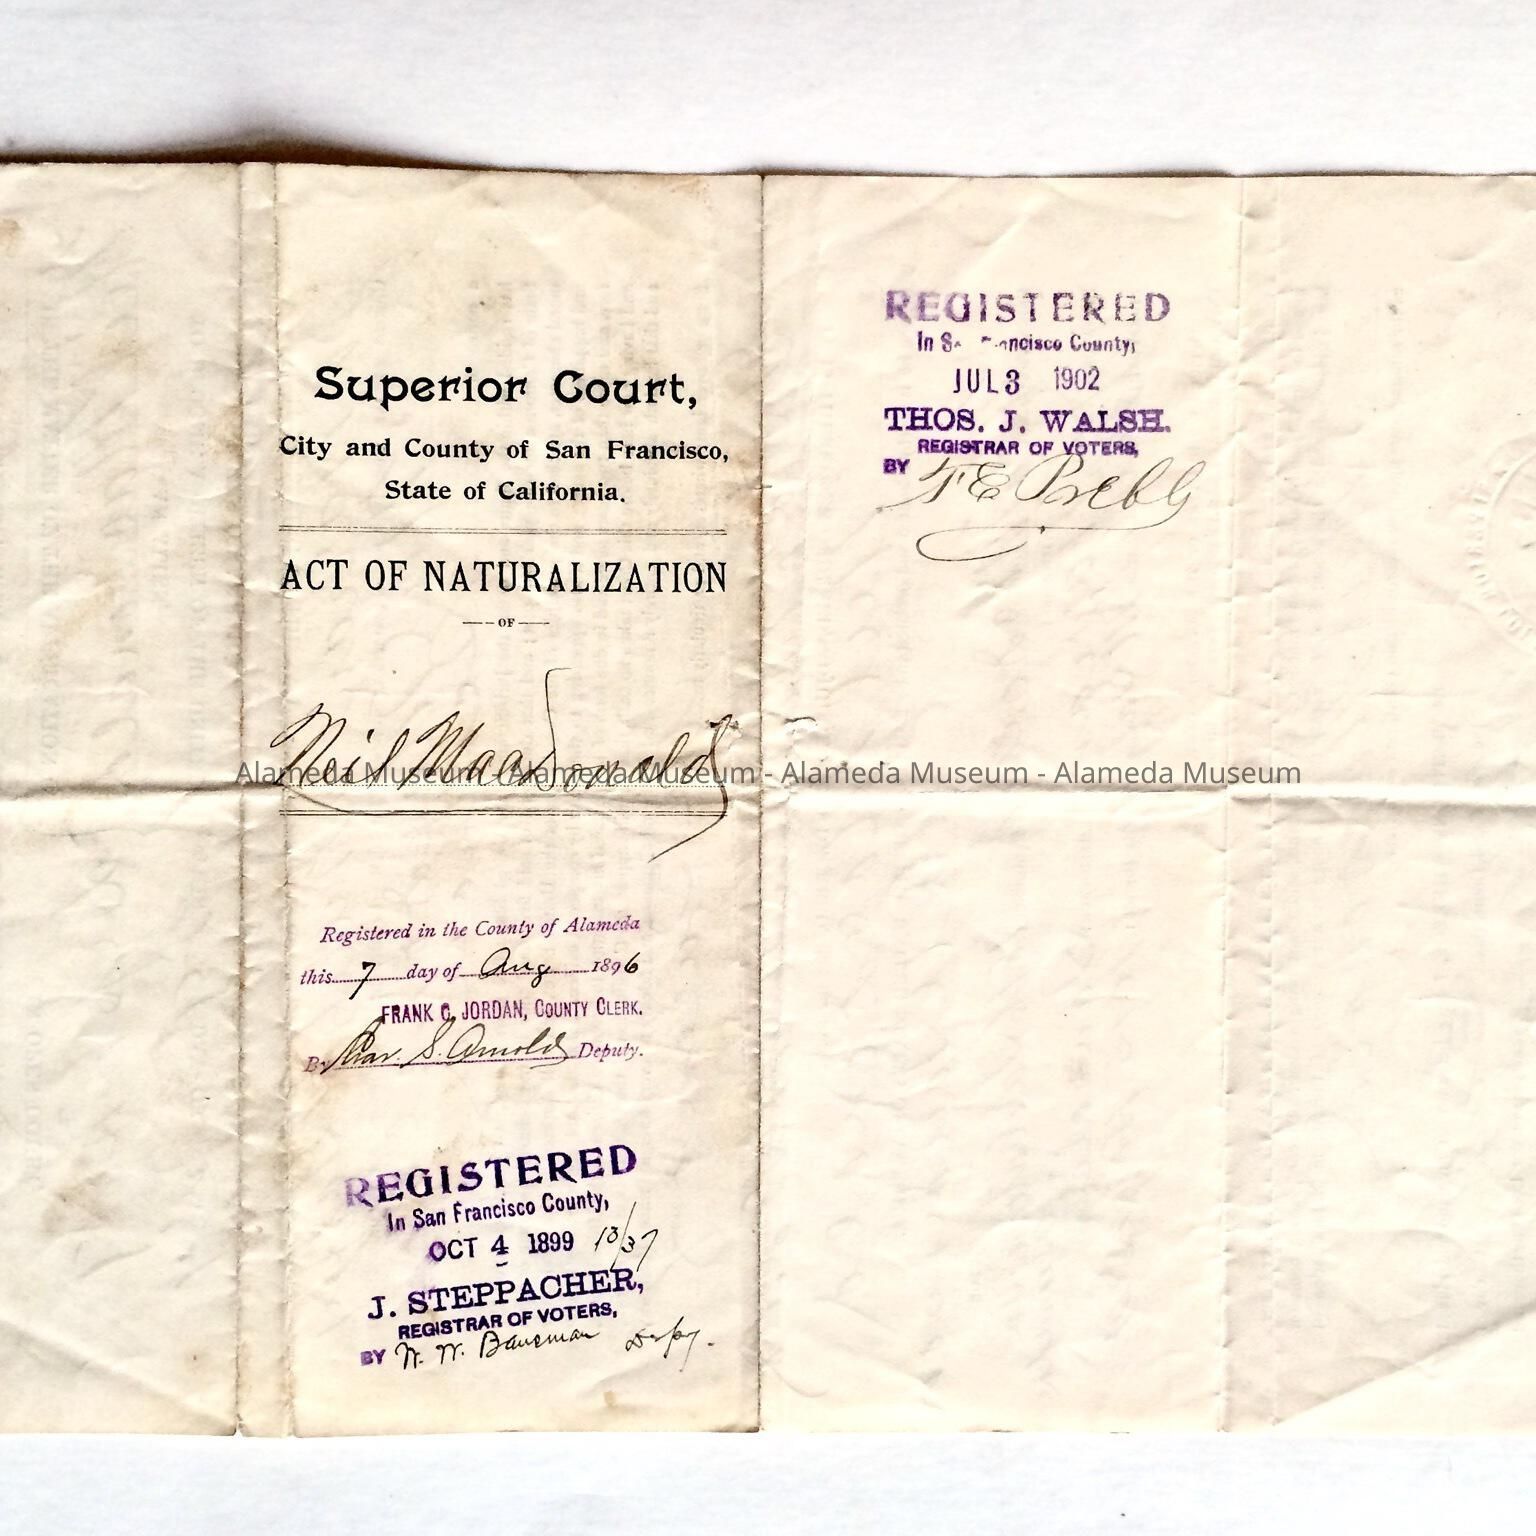 Superior Court,
City and County of San Francisco,
State of California.
ACT OF NATURALIZATION
OF
Neil MacDonald
Alameda Museum - Alameda Museum - Alameda Museum - Alameda Museum
Registered in the County of Alameda
this 7 day of Aug 1896
FRANK C. JORDAN, COUNTY CLERK.
By Chas. S. Arnold Deputy.
REGISTERED
In San Francisco County,
OCT 4 1899 13/37
J. STEPPACHER,
REGISTRAR OF VOTERS,
BY W. W. Deputy.
REGISTERED
In San Francisco County,
JUL 3 1902
THOS. J. WALSH.
REGISTRAR OF VOTERS,
BY F E Preble